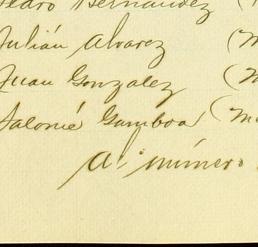 Pedro Hernández (
Julián Alvarez (M
Juan Gonzalez (M
Salomé Gamboa (Ma